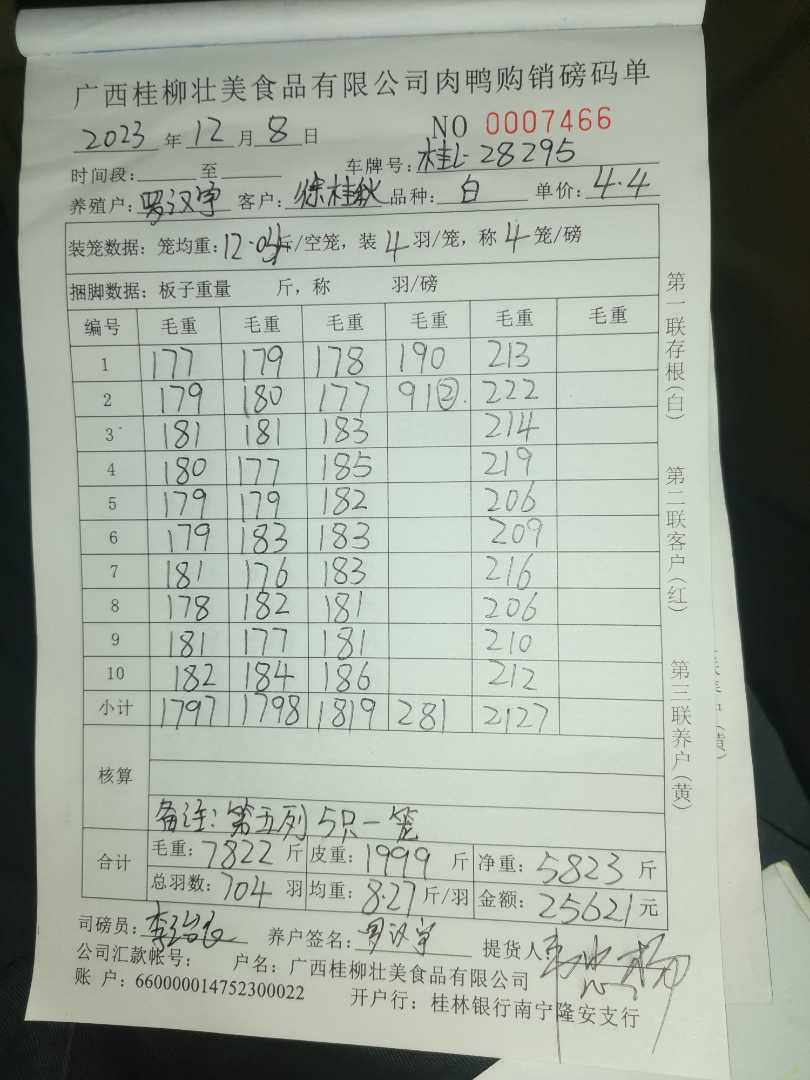 广西桂柳壮美食品有限公司肉鸭购销磅码单
2023 年 12 月 8 日 NO 0007466
时间段: 至 车牌号: 桂L·28295
养殖户: 罗汉宇 客户: 徐桂秋 品种: 白 单价: 4.4
装笼数据: 笼均重: 12.0 斤/空笼, 装 4 羽/笼, 称 4 笼/磅
捆脚数据: 板子重量 斤, 称 羽/磅
编号 毛重 毛重 毛重 毛重 毛重 毛重
1 177 179 178 190 213
2 179 180 177 91② 222
3 181 181 183 214
4 180 177 185 219
5 179 179 182 206
6 179 183 183 209
7 181 176 183 216
8 178 182 181 206
9 181 177 181 210
10 182 184 186 212
小计 1797 1798 1819 281 2127
核算
备注: 第五列 5只一笼
合计 毛重: 7822 斤 皮重: 1999 斤 净重: 5823 斤
总羽数: 704 羽 均重: 8.27 斤/羽 金额: 25621 元
司磅员: 养户签名: 罗汉宇 提货人:
公司汇款帐号: 户名: 广西桂柳壮美食品有限公司
账 户: 660000014752300022 开户行: 桂林银行南宁隆安支行
第一联存根(白) 第二联客户(红) 第三联养户(黄)